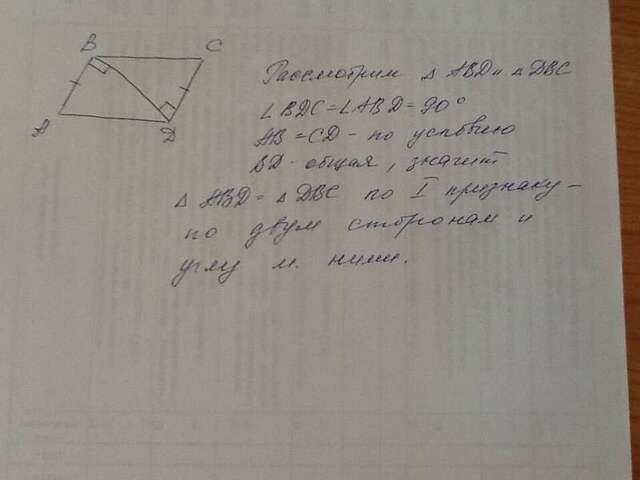 B
C
A
D
Рассмотрим △ ABD и △ DBC
∠BDC = ∠ABD = 90°
AB = CD - по условию
BD - общая, значит
△ ABD = △ DBC по I признаку -
по двум сторонам и
углу м. ними.